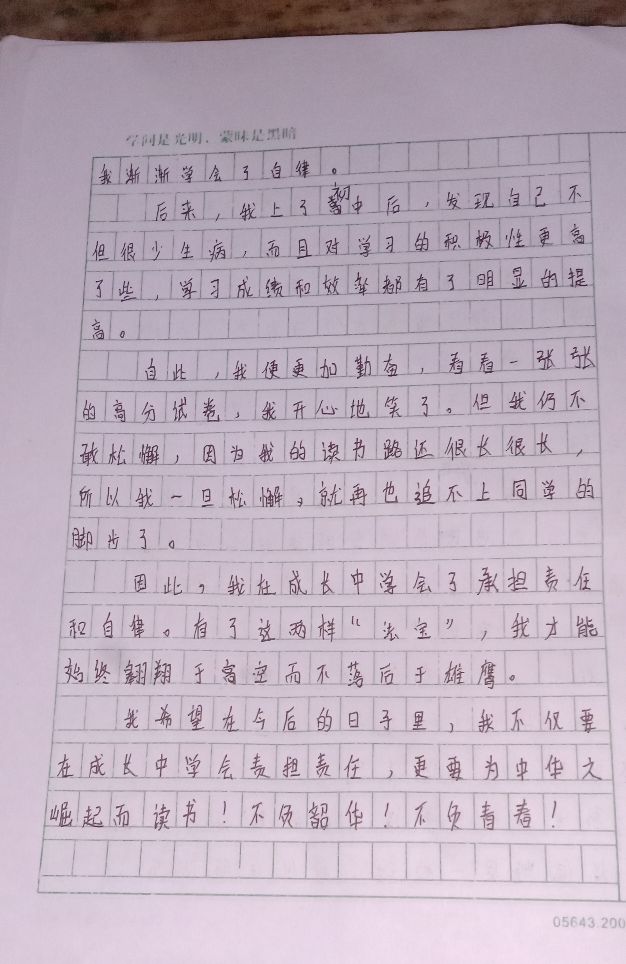 学问是光明，蒙昧是黑暗
我渐渐学会了自律。
后来，我上了初中后，发现自己不
但很少生病，而且对学习的积极性更高
了些，学习成绩和效率都有了明显的提
高。
自此，我便更加勤奋，看着一张张
的高分试卷，我开心地笑了。但我仍不
敢松懈，因为我的读书路还很长很长，
所以我一旦松懈，就再也追不上同学的
脚步了。
因此，我在成长中学会了承担责任
和自律。有了这两样“法宝”，我才能
始终翱翔于高空而不落后于雄鹰。
我希望在今后的日子里，我不仅要
在成长中学会责担责任，更要为中华之
崛起而读书！不负韶华！不负青春！
05643.200